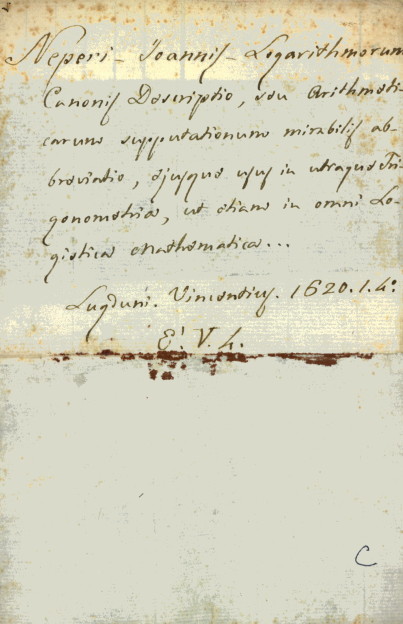 Neperi - Joannis - Logarithmorum
Canonis Descriptio, seu Arithmeti-
carum supputationum mirabilis ab-
breviatio, ejusque usus in utraque Tri-
gonometria, ut etiam in omni Lo-
gistica Mathematica...
Lugduni. Vincentius. 1620. 1. 4º
E. V. 4.
C